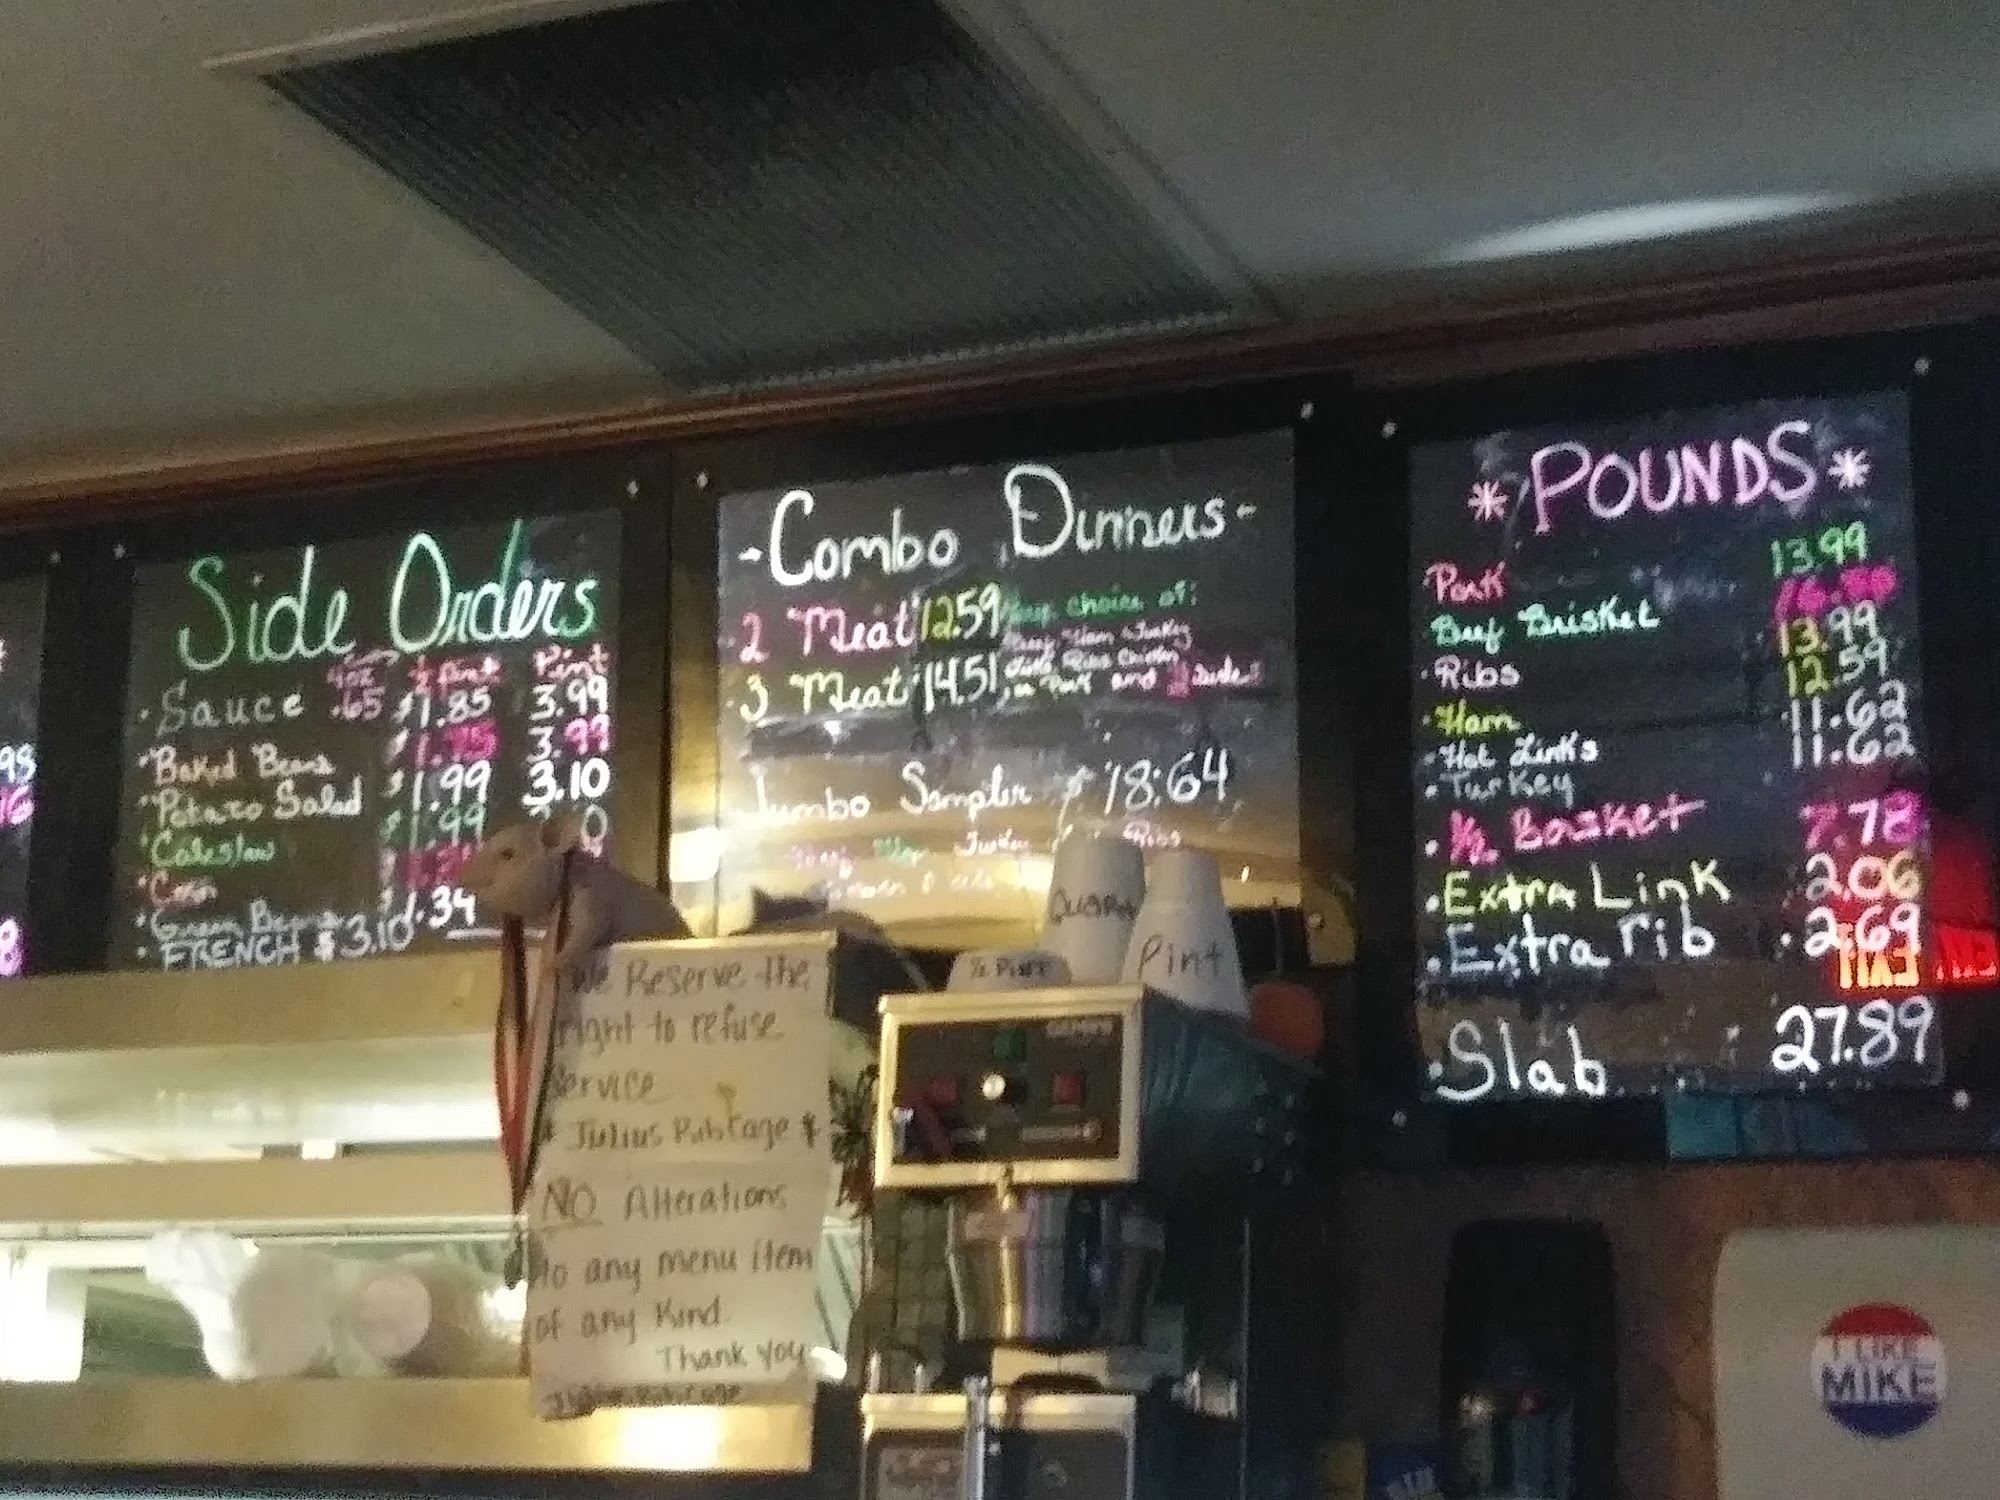 98
16
8
Side Orders
4oz ½ Pint Pint
• Sauce .65 $1.85 3.99
• Baked Beans $1.75 3.99
• Potato Salad $1.99 3.10
• Coleslaw $1.99 0
• Corn
• Green Beans 1.34
• FRENCH $3.10
- Combo Dinners -
• 2 Meat 12.59 choice of:
Beef Ham Turkey
• 3 Meat 14.51 Links Ribs Chicken
or Pork and Sides
Jumbo Sampler $18.64
Turkey Ribs
* POUNDS *
• Pork 13.99
• Beef Brisket
• Ribs 13.99
• Ham 12.59
• Hot Links 11.62
• Turkey 11.62
• ½ Basket 7.78
• Extra Link 2.06
• Extra rib 2.69
• Slab 27.89
EXIT
We Reserve the
right to refuse
Service
* Julius Ribcage *
NO Alterations
to any menu item
of any Kind.
Thank you
Quart
½ Pint
Pint
I LIKE
MIKE